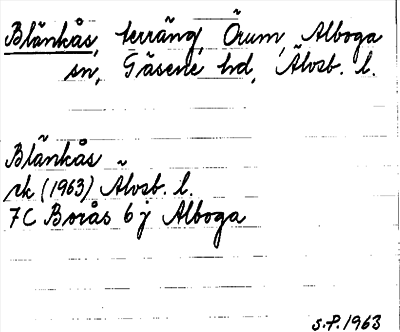 Blänkås, terräng, Örum, Alboga
sn, Gäsene hd, Älvsb. l.
Blänkås
rk (1963) Älvsb. l.
7C Borås 6j Alboga
S.F. 1963